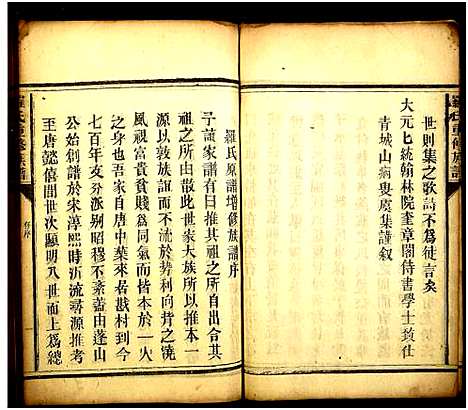 世則集之歌詩不為徒言矣
大元七統翰林院奎章閣侍書學士致仕
青城山病叟虞集謹敘
羅氏重修族譜
羅氏原譜增修族譜序
予讀家譜有曰推其祖之所自出合其
祖之所由散此世家大族以推原本一
源以敦族誼而不流於勢利向背之澆
風視富貴貧賤為同氣而皆本於一人
之身也吾家自唐中葉來居戡村到今
七百年支分派別昭穆不紊蓋由蓬山
公始創譜於宋淳熙時泝流尋源推考
至唐懿僖間世次顯明八世而上為總
羅氏重修族譜